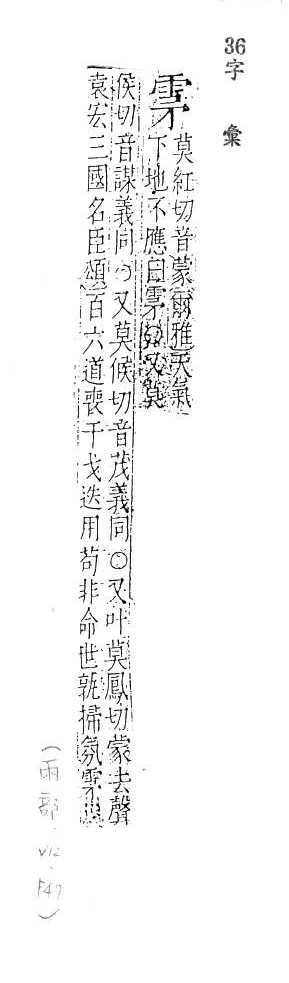 36字 彙
雺
莫紅切音蒙爾雅天氣
下地不應曰雺○又莫
侯切音謀義同○又莫候切音茂義同○又叶莫鳳切蒙去聲
袁宏三國名臣頌百六道喪干戈迭用苟非命世孰掃氛雺
(雨部.v12.P47)